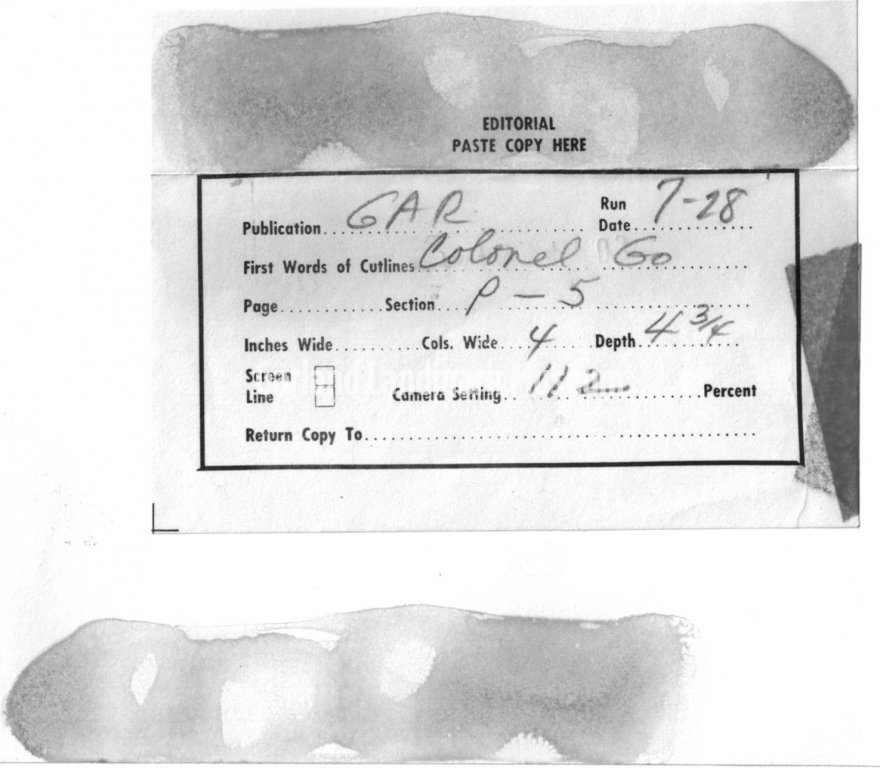 EDITORIAL
PASTE COPY HERE
Publication GAR Run Date 7-28
First Words of Cutlines Colonel Go
Page Section P-5
Inches Wide Cols. Wide 4 Depth 4 3/4
Screen
Line Camera Setting 112 Percent
Return Copy To